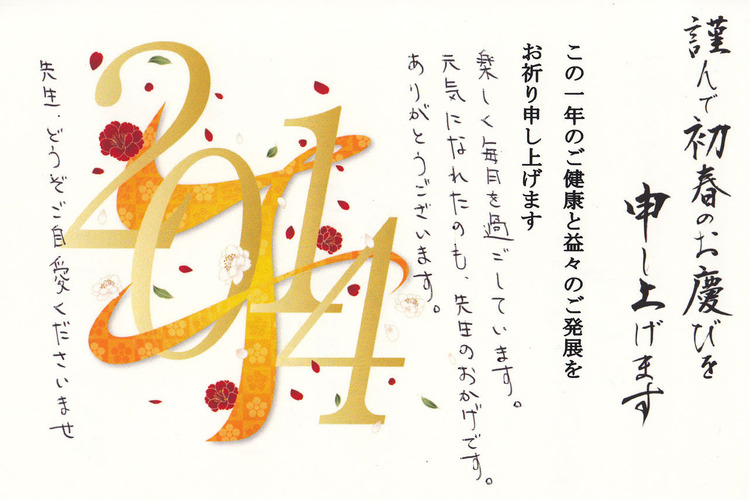 謹んで初春のお慶びを
申し上げます
この一年のご健康と益々のご発展を
お祈り申し上げます
楽しく毎日を過ごしています。
元気になれたのも、先生のおかげです。
ありがとうございます。
2014
先生、どうぞご自愛くださいませ